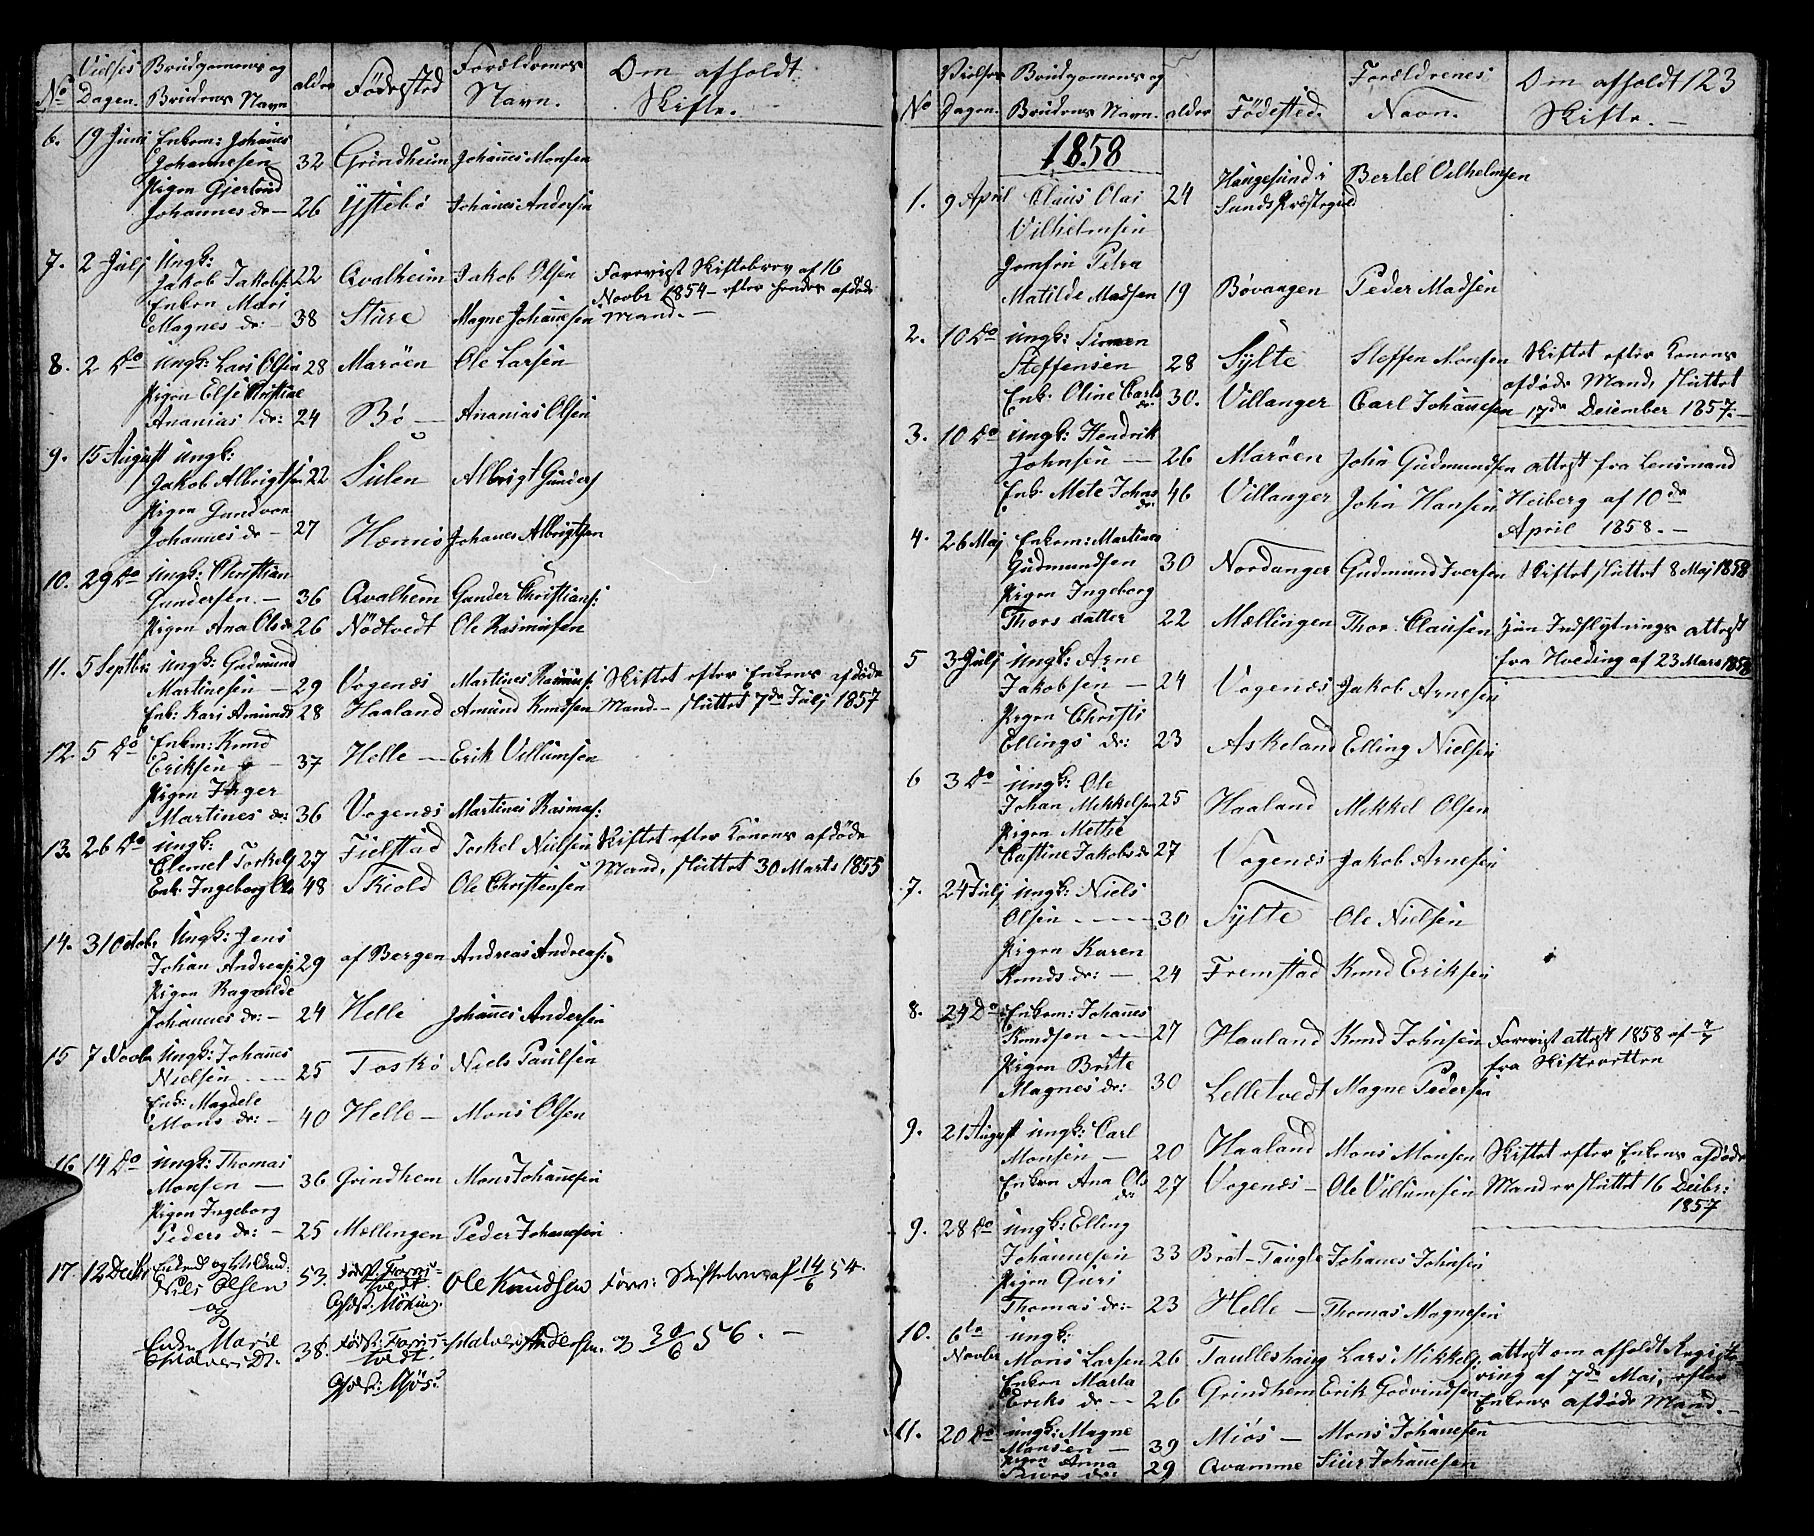 No Vielses Dagen. Brudgomens og Brudens Navn alder Födested Forældrenes Navn. Om afholdt Skifte.
6. 19 Juni Enkem: Johañes
Johannesen 32 Grindheim Johañes Monsen
Pigen Gjertrud
Johannes dr — 26 Ystebö Johañes Andersen
7. 2 Julj Ungk:
Jakob Jakobs: 22 Qvalheim Jakob Olsen Forevist Skiftebrev af 16
Enken Mari Novbr 1854 — efter hendes afdöde
Magnes dr: — 38 Sture Magne Johañesen Mand. —
8. 2 Do Ungk: Lars Olsen 28 Maröen Ole Larsen
Pigen Else Christine
Ananias dr: 24 Bö — Ananias Olsen
9. 15 August Ungk:
Jakob Albrigtsen 22 Sulen Albrigt Gunders
Pigen Gundvor
Johannes dr — 27 Hennö Johanes Albrigtsen
10. 29 Do Ungk: Christian
Gundersen. — 36 Qvalhem Gunder Christians:
Pigen Ana Ols dr 26 Nödtvedt Ole Rasmusen
11. 5 Septbr: Ungk: Gudmund
Martinesen — 29 Vogenæs Martines Rasmus: Skiftet efter Enkens afdöde
Enk: Kari Amunds 28 Haaland Amund Knudsen Mand — sluttet 7de Julj 1857
12. 5 Do Enkm: Knud
Eriksen — 37 Helle — Erik Villumsen
Pigen Inger
Martines dr: 36 Vogenæs Martines Rasmus:
13. 26 Do Ungk:
Clemet Torkels 27 Fielstad Torkel Nielsen Skiftet efter Konens afdöde
Enk: Ingeborg Ole 48 Skiold Ole Christensen Mand, sluttet 30 Marts 1855
14. 31 Octobr Ungk: Jens
Johan Andreas: 29 af Bergen Andreas Andreas:
Pigen Ragnilde
Johannes dr: — 24 Helle Johañes Andersen
15 7 Novbr Ungk: Johañes
Nielsen — 25 Toskö Niels Paulsen
Enk: Magdele
Mons dr: — 40 Helle — Mons Olsen
16. 14 Do Ungk: Thomas
Monsen — 36 Grindhem Mons Johañesen
Pigen Ingeborg
Peders dr: — 25 Mællingen Peder Johañesen
17. 12 Decbr Enkm og
Nils Olsen 53. Ole Knudsen Forev: Skiftebrev af 14/6 54.
og
Enke Marie 38. Andersen. 30/6 56. —
No Vielses Dagen. Brudgomens og Brudens Navn. alder Födested. Forældrenes Navn. Om afholdt Skifte. — 123
1858
1. 9 April Claus Olai 24 Haugesund i Bertel Vilhelmsen
Vilhelmsen Sunds Præstegield
Jomfru Petra
Matilde Madsen 19 Bövaagen Peder Madsen
2. 10 Do Ungk: Simen
Steffensen 28 Sylte Steffen Monsen Skiftet efter Konens
Enk. Oline Carls dr: 30. Villanger Carl Johañesen afdöde Mand, sluttet
17de Deiember 1857. —
3. 10 Do Ungk: Hendrik
Johnsen — 26 Maröen John Gudmundsen attest fra Lensmand
Enk. Mete Johns dr: 46 Villanger John Hansen Heiberg af 10de
April 1858. —
4. 26 Maj Enkem: Martines
Gudmundsen 30 Nordanger Gudmund Iversen Skiftet sluttet 8 Maj 1858
Pigen Ingeborg
Thors datter 22 Mællingen Thor Clausen Indflytnings attest
fra Hveding af 23 Mars 1858
5 3 Julj Ungk: Arne
Jakobsen — 24 Vogenæs Jakob Arnesen
Pigen Christi
Ellings dr: 23 Askeland Elling Nielsen
6 3 Do Ungk: Ole
Johan Mikkelsen 25 Haaland Mikkel Olsen
Pigen Methe
Castine Jakobs dr 27 Vogenæs Jakob Arnesen
7. 24 Julj Ungk: Niels
Olsen — 30 Sylte Ole Nielsen
Pigen Karen
Knuds dr: — 24 Fremstad Knud Eriksen
8. 24 Do Enkem: Johañes
Knudsen — 27 Haaland Knud Johnsen Forevist attest 1858 af
Pigen Brite fra Skifteretten
Magnes dr: 30 Lelletvedt Magne Pedersen
9. 21 August Ungk: Carl
Monsen — 20 Haaland Mons Monsen Skiftet efter Enkens afdöde
Enken Ana Ols dr 27 Vogenæs — Ole Villumsen Mand er sluttet 16 Decbr:
1857
9. 28 Do Ungk: Elling
Johannesen 33 Brat-Tangle Johañes Johnsen
Pigen Guri
Thomas dr: 23 Helle — Thomas Magnesen
10. 6te Novbr Ungk:
Mons Larsen 26 Lars Mikkels: attest om afholdt Registe-
Enken Marta ring af 7de Maj, efter
Eriks dr — 26 Grindhem Erik Godvindsen Enkens afdöde Mand. —
11. 20 Do Ungk: Magne
Monsen — 39 Miös — Mons Johañesen
Pigen Anna
Siurs dr: 29 Qvamme Siur Johañesen